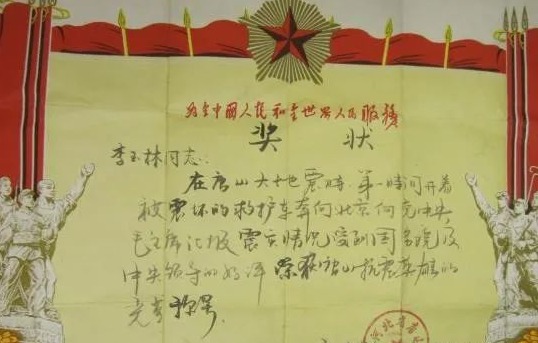 为全中國人民和全世界人民服務
奖状
李玉林同志:
在唐山大地震時第一時间开着
被震坏的救护车奔向北京向党中央
毛主席汇报震灾情况受到国务院及
中央领导的好评 荣获唐山抗震英雄的
光荣称号
河北省